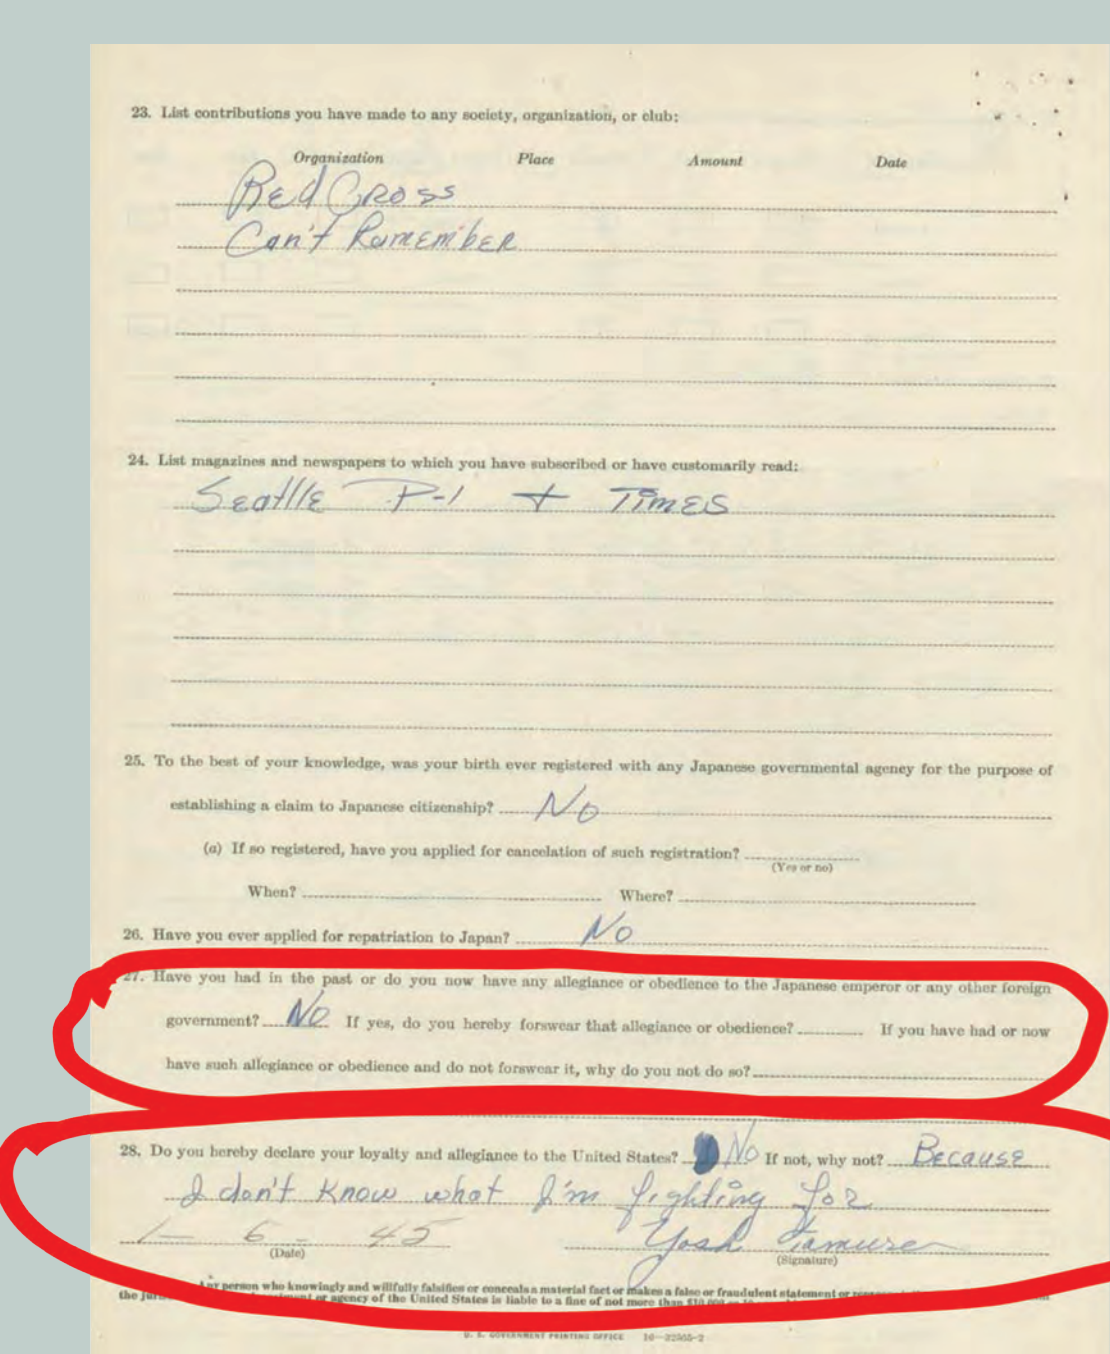 23. List contributions you have made to any society, organization, or club:
Organization Place Amount Date
Red Cross
Can't Ramember
24. List magazines and newspapers to which you have subscribed or have customarily read:
Seattle P-I + Times
25. To the best of your knowledge, was your birth ever registered with any Japanese governmental agency for the purpose of
establishing a claim to Japanese citizenship? No
(a) If so registered, have you applied for cancelation of such registration?
(Yes or no)
When? Where?
26. Have you ever applied for repatriation to Japan? No
27. Have you had in the past or do you now have any allegiance or obedience to the Japanese emperor or any other foreign
government? No If yes, do you hereby forswear that allegiance or obedience? If you have had or now
have such allegiance or obedience and do not forswear it, why do you not do so?
28. Do you hereby declare your loyalty and allegiance to the United States? No If not, why not? Because
I don't know what I'm fighting for
1- 6 - 45 Yosh
(Date) (Signature)
Any person who knowingly and willfully falsifies or conceals a material fact or makes a false or fraudulent statement or
the or agency of the United States is liable to a fine of not more than
U. S. GOVERNMENT PRINTING OFFICE 16—22565-2